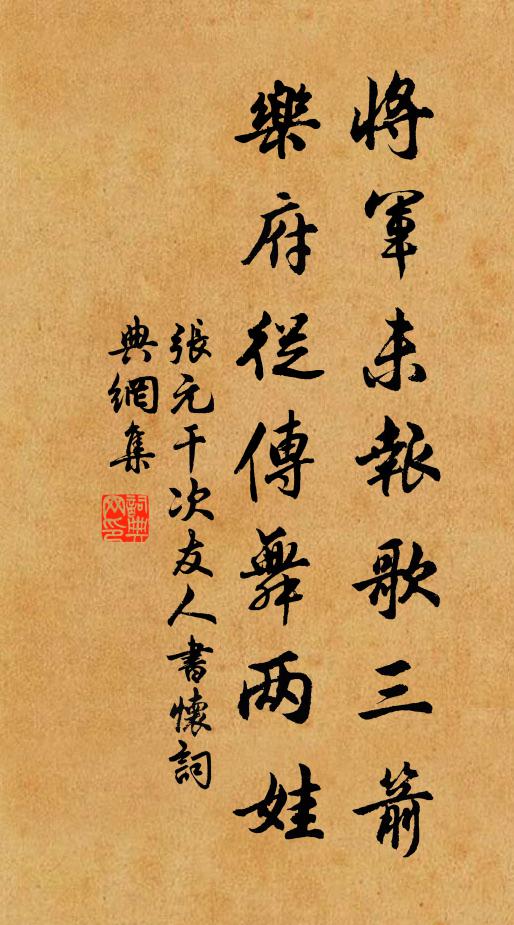 將軍未報歌三箭
樂府從傳舞两娃
張元干次友人書懷詞
典網集
詞典網印